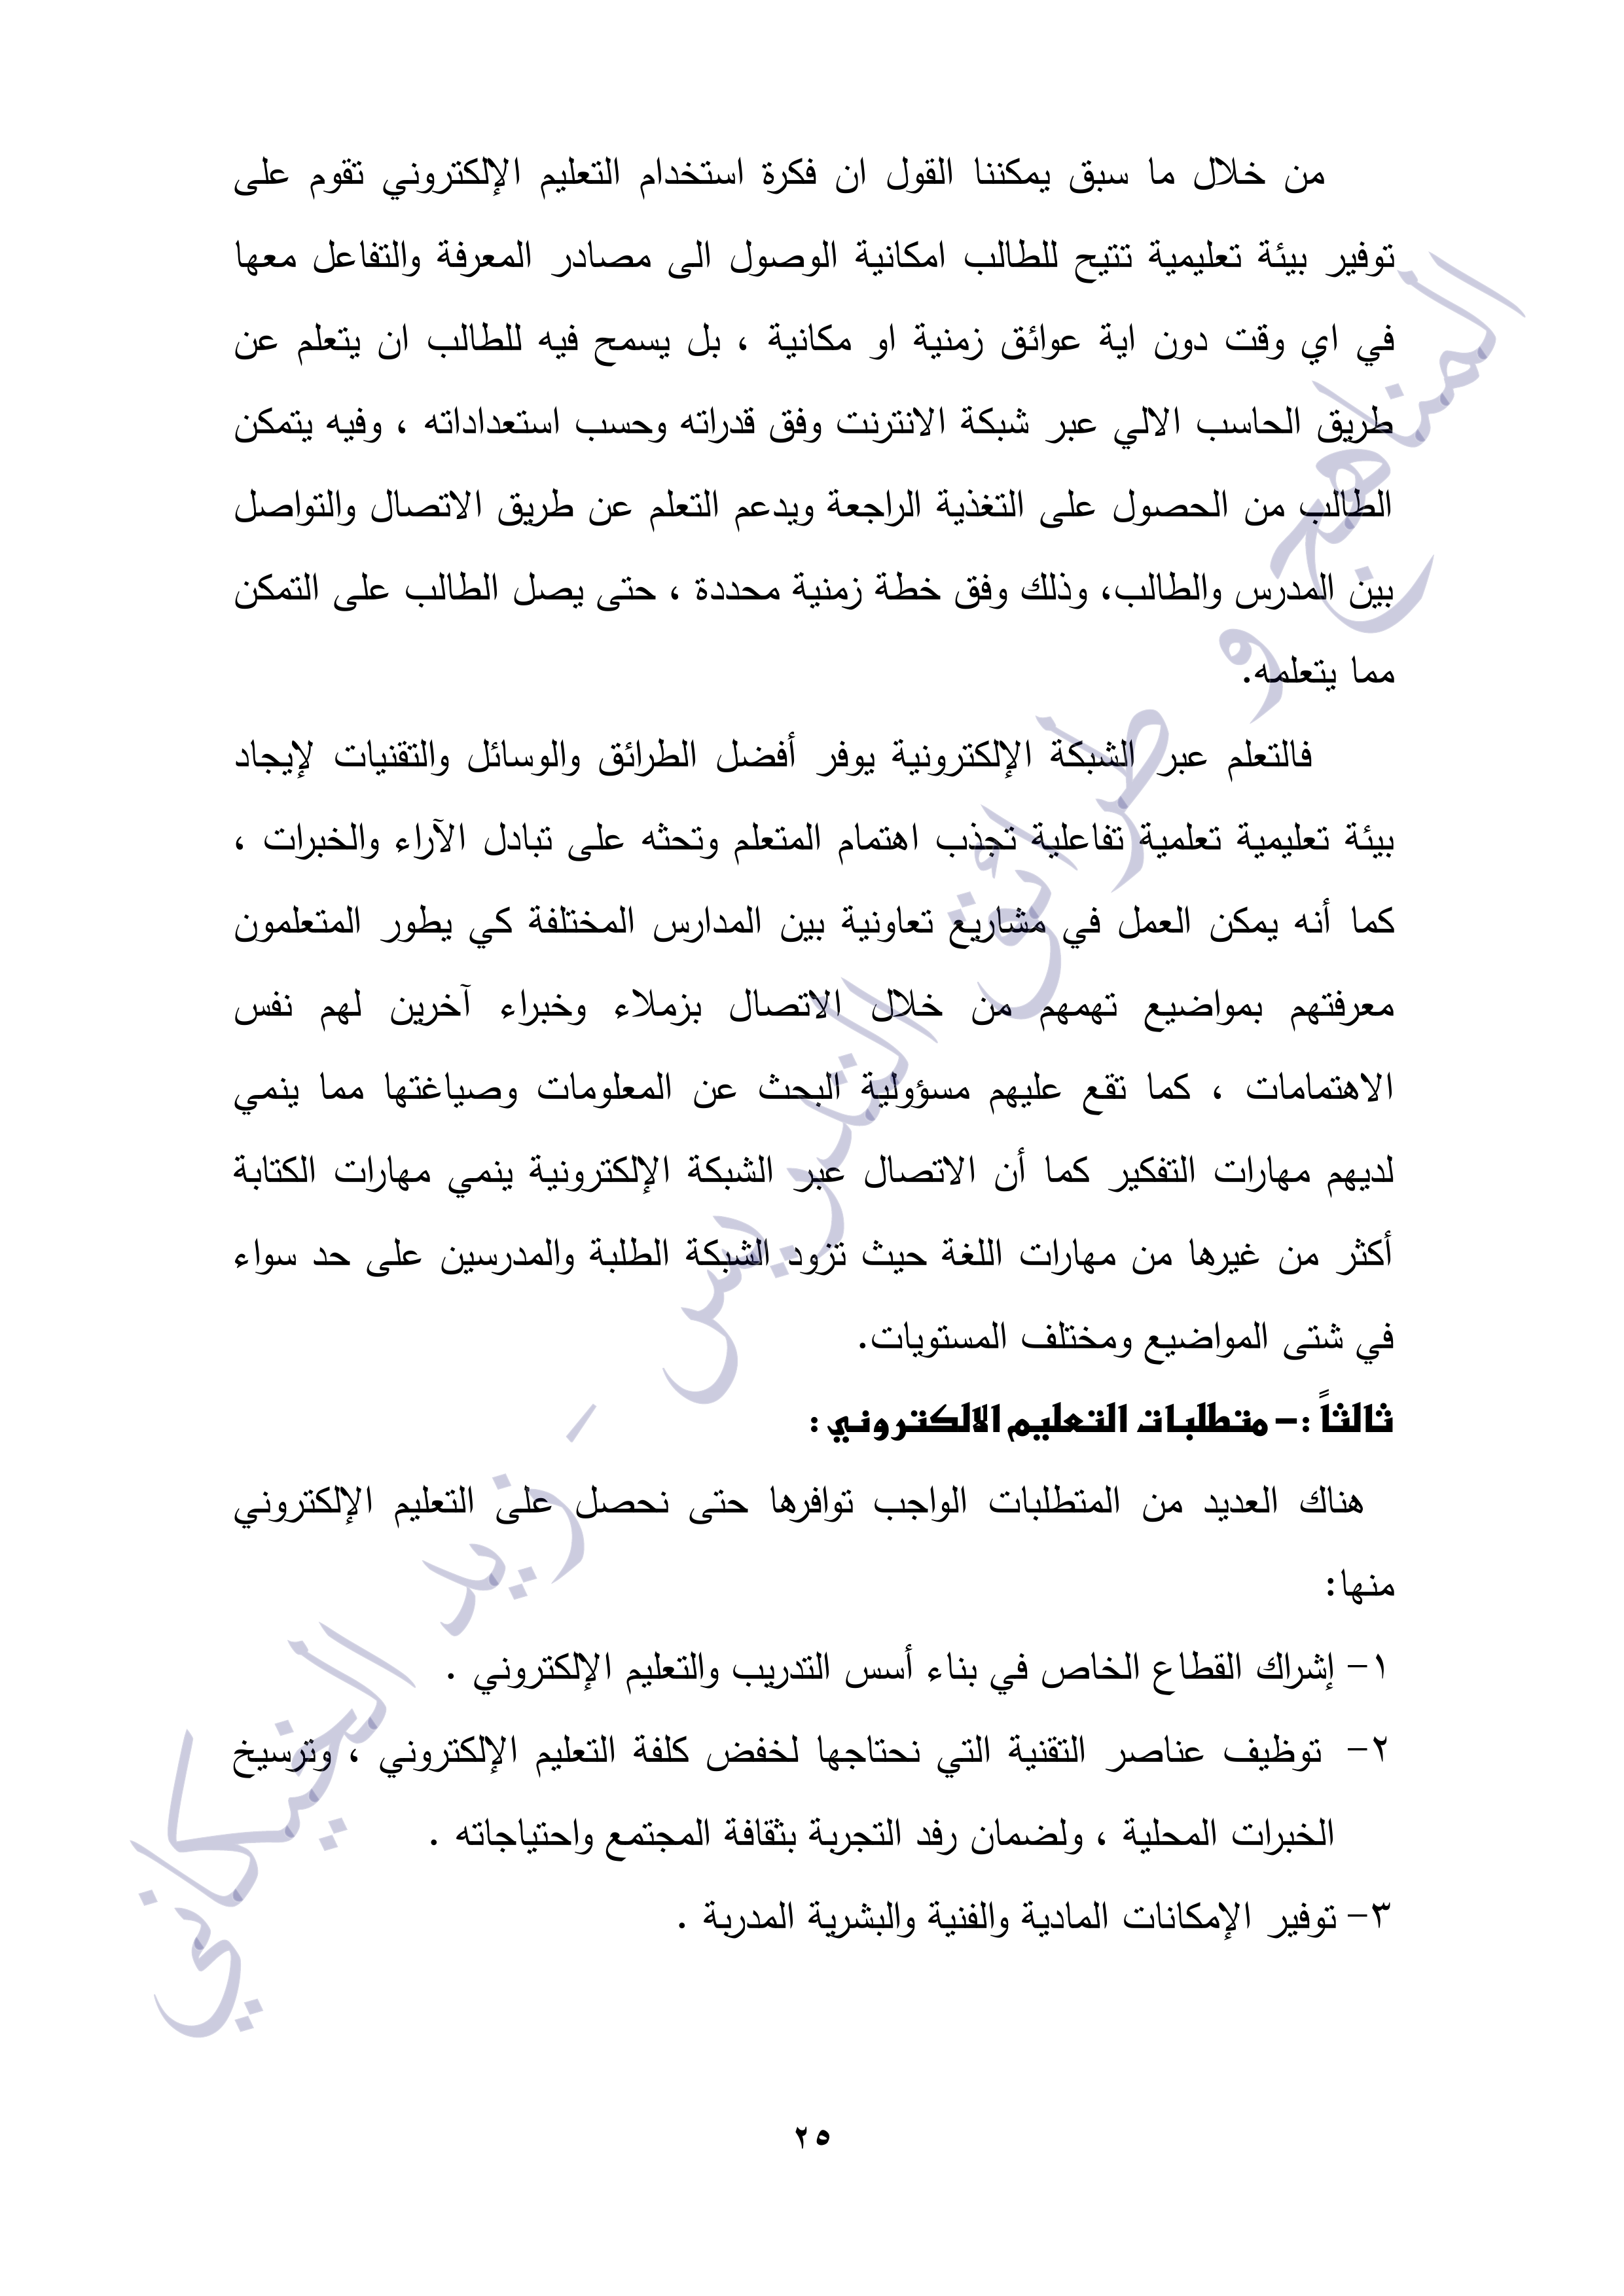 من خلال ما سبق يمكننا القول ان فكرة استخدام التعليم الإلكتروني تقوم على
توفير بيئة تعليمية تتيح للطالب امكانية الوصول الى مصادر المعرفة والتفاعل معها
في اي وقت دون اية عوائق زمنية او مكانية ، بل يسمح فيه للطالب ان يتعلم عن
طريق الحاسب الالي عبر شبكة الانترنت وفق قدراته وحسب استعداداته ، وفيه يتمكن
الطالب من الحصول على التغذية الراجعة ويدعم التعلم عن طريق الاتصال والتواصل
بين المدرس والطالب، وذلك وفق خطة زمنية محددة ، حتى يصل الطالب على التمكن
مما يتعلمه.
فالتعلم عبر الشبكة الإلكترونية يوفر أفضل الطرائق والوسائل والتقنيات لإيجاد
بيئة تعليمية تعلمية تفاعلية تجذب اهتمام المتعلم وتحثه على تبادل الآراء والخبرات ،
كما أنه يمكن العمل في مشاريع تعاونية بين المدارس المختلفة كي يطور المتعلمون
معرفتهم بمواضيع تهمهم من خلال الاتصال بزملاء وخبراء آخرين لهم نفس
الاهتمامات ، كما تقع عليهم مسؤولية البحث عن المعلومات وصياغتها مما ينمي
لديهم مهارات التفكير كما أن الاتصال عبر الشبكة الإلكترونية ينمي مهارات الكتابة
أكثر من غيرها من مهارات اللغة حيث تزود الشبكة الطلبة والمدرسين على حد سواء
في شتى المواضيع ومختلف المستويات.
ثالثاً :– متطلبات التعليم الالكتروني :
هناك العديد من المتطلبات الواجب توافرها حتى نحصل على التعليم الإلكتروني
منها:
١– إشراك القطاع الخاص في بناء أسس التدريب والتعليم الإلكتروني .
٢– توظيف عناصر التقنية التي نحتاجها لخفض كلفة التعليم الإلكتروني ، وترسيخ
الخبرات المحلية ، ولضمان رفد التجربة بثقافة المجتمع واحتياجاته .
٣– توفير الإمكانات المادية والفنية والبشرية المدربة .
٢٥
المناهج و طرائق التدريس - زيد الخيكاني